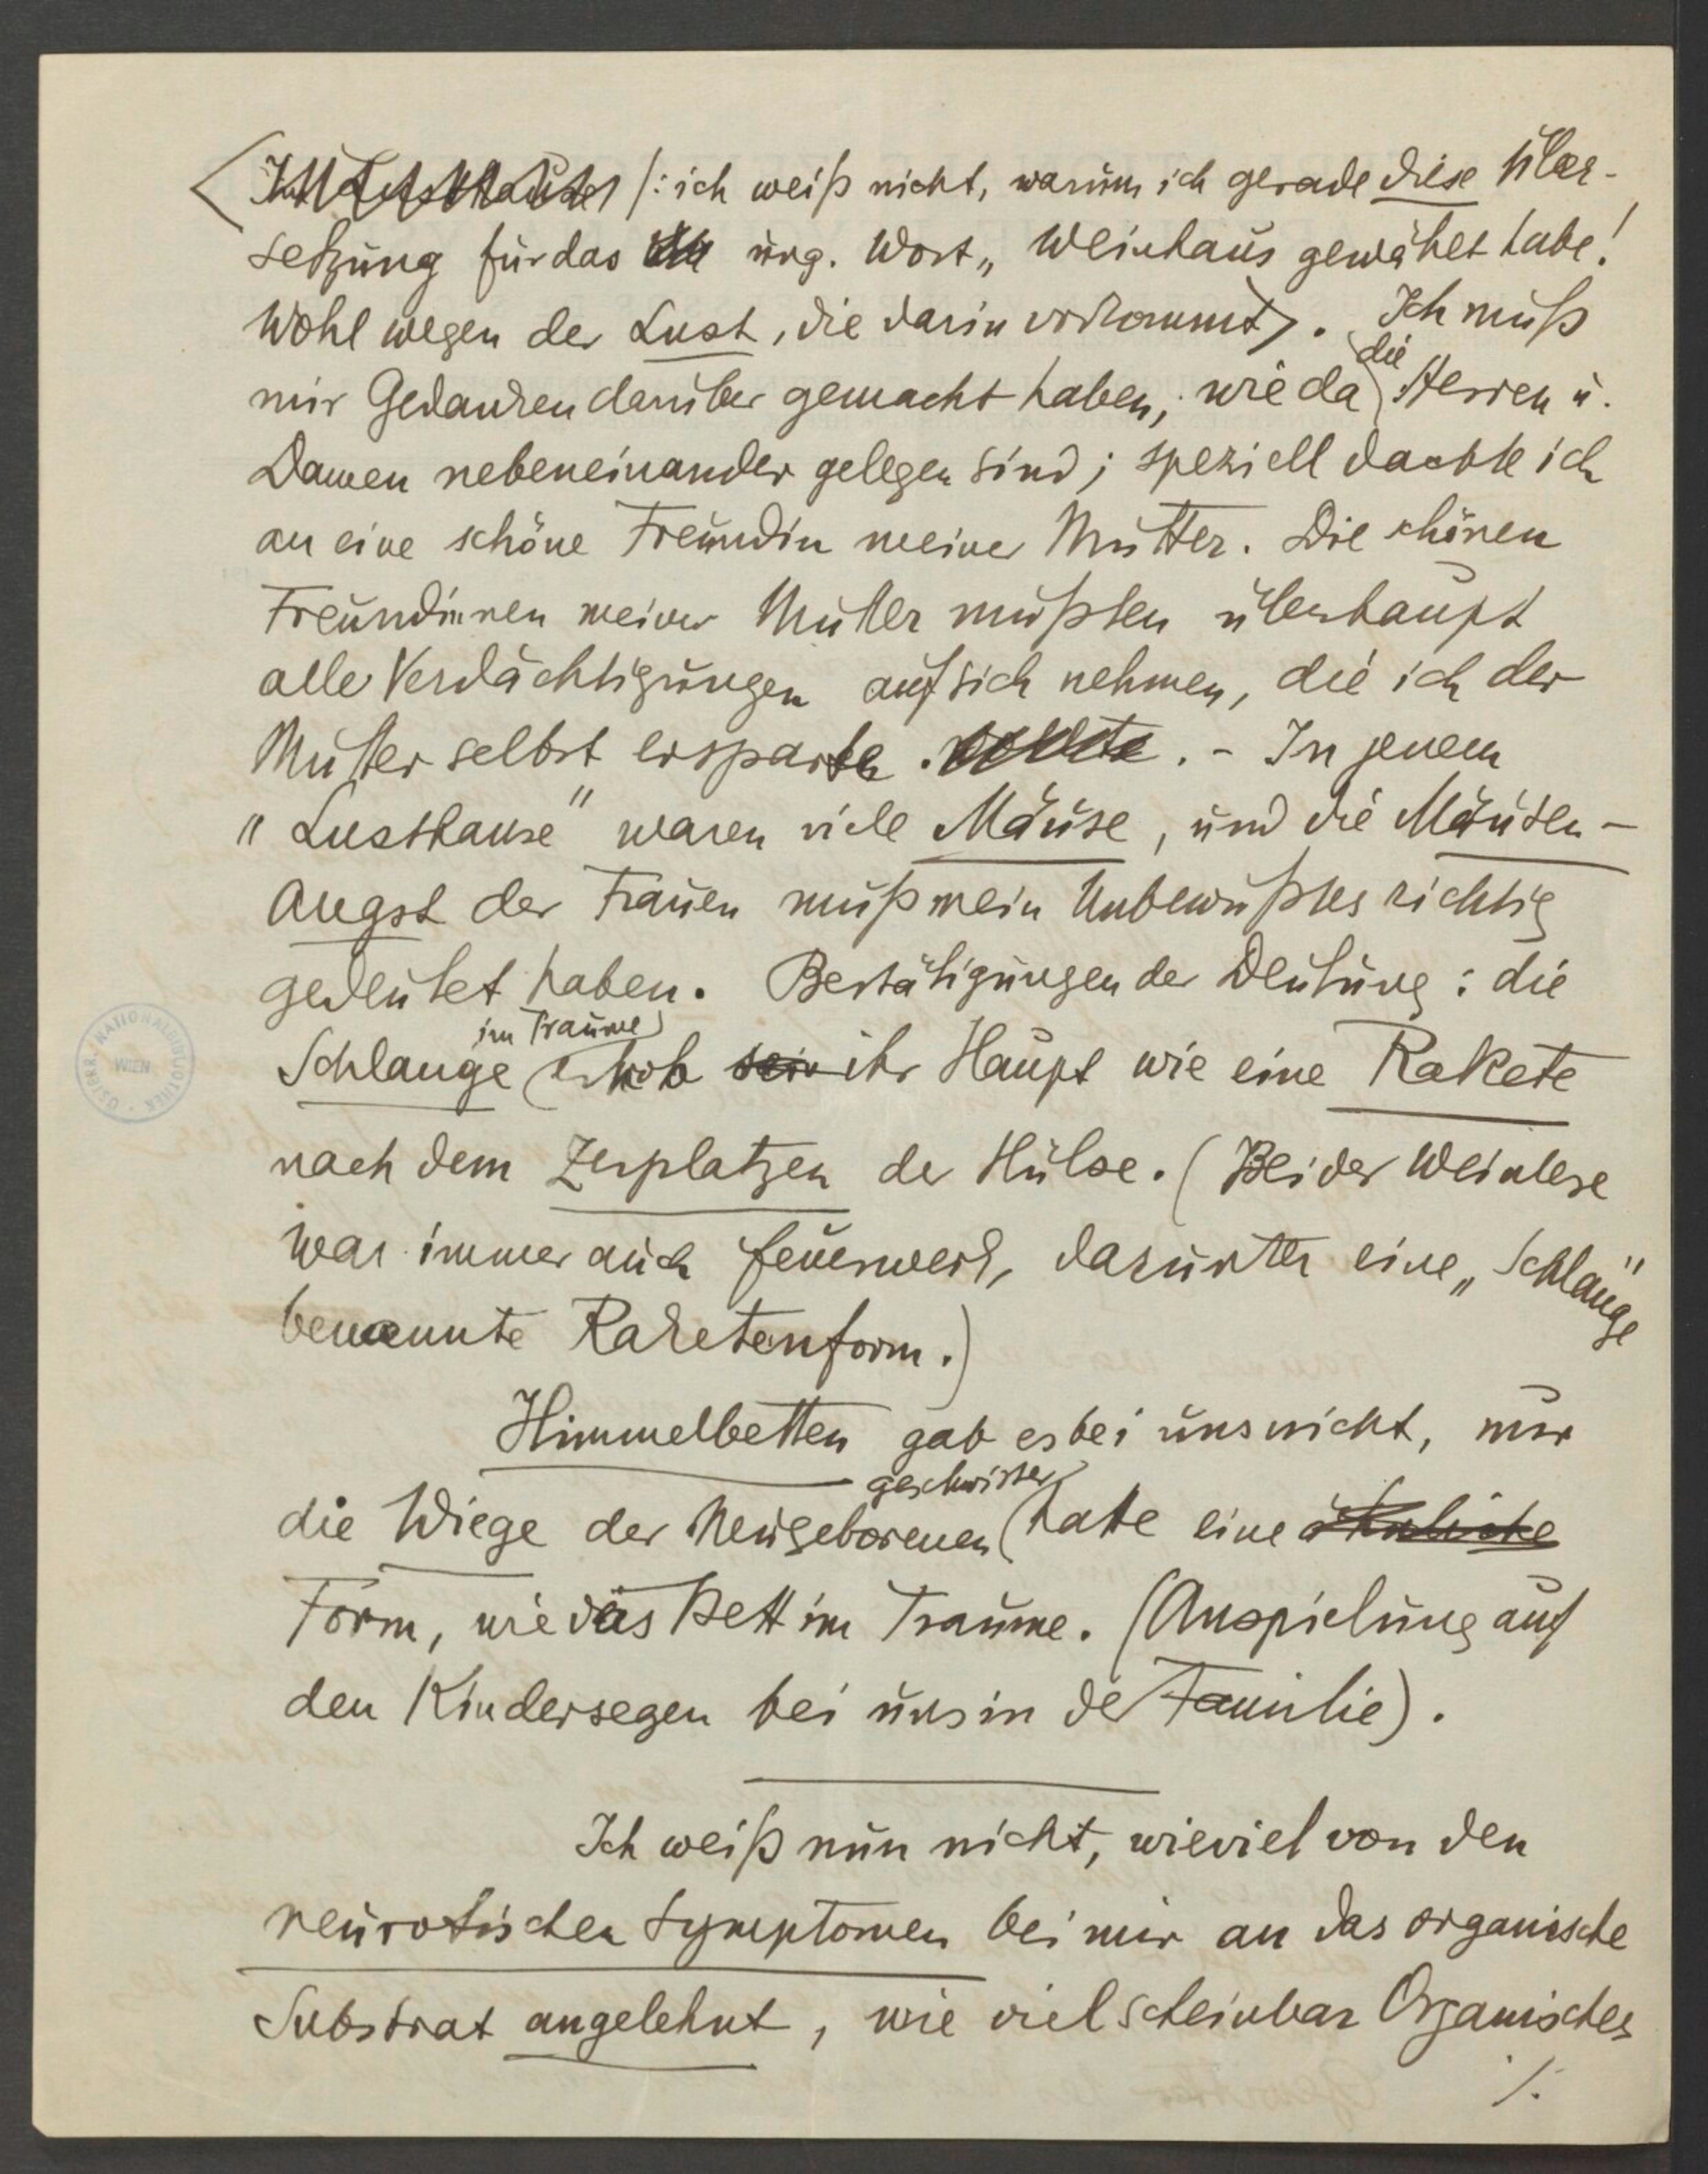 /: ich weiß nicht, warum ich gerade diese Über-
setzung für das ung. Wort „Weinhaus gewählt habe!
Wohl wegen der Lust, die darin vorkommt>. Ich muß
mir Gedanken darüber gemacht haben, wie da die Herren u.
Damen nebeneinander gelegen sind; speziell dachte ich
an eine schöne Freundin meiner Mutter. Die schönen
Freundinnen meiner Mutter mußten überhaupt
alle Verdächtigungen auf sich nehmen, die ich der
Mutter selbst ersparte. wollte. - In jenem
"Lusthause" waren viele Mäuse, und die Mäusen-
Angst der Frauen muß mein Unbewußtes richtig
gedeutet haben. Bestätigungen der Deutung: die
Schlange im Traume erhob sein ihr Haupt wie eine Rakete
nach dem Zerplatzen der Hülse. (Bei der Weinlese
war immer auch Feuerwerk, darunter eine „Schlange"
benannte Raketenform.)
Himmelbetten gab es bei uns nicht, nur
die Wiege der Neugeborenen geschwister hatte eine ähnliche
Form, wie das Bett im Traume. (Anspielung auf
den Kindersegen bei uns in der Familie).
Ich weiß nun nicht, wieviel von den
neurotischen Symptomen bei mir an das organische
Substrat angelehnt, wie viel scheinbar Organisches
./.
ÖSTERR. NATIONALBIBLIOTHEK WIEN